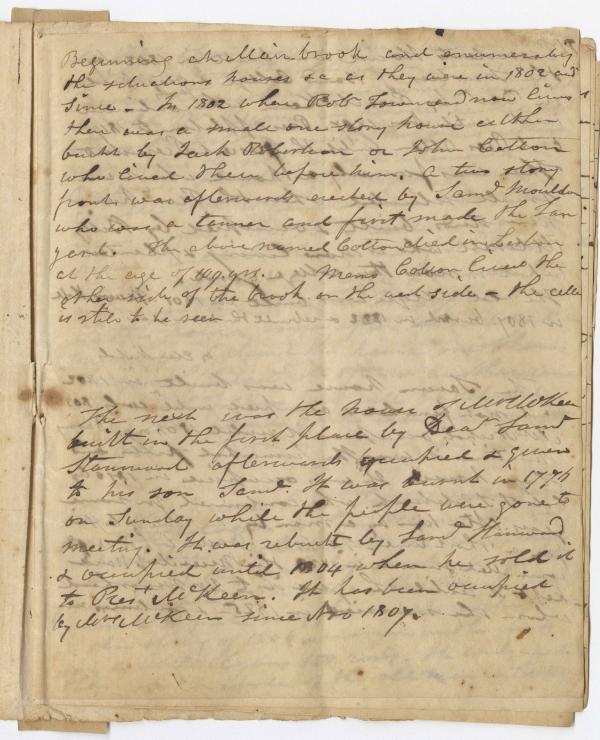 Beginning at Mair brook and enumerating
the situations houses &c as they were in 1802 and
Since - In 1802 where Robt Townsend now lives
there was a small one story house either
built by Jack Robertson or John Cotton
who lived there before him. A two story
front was afterwards erected by Saml Moulden
who was a tanner and first made the Tan
yard. The above named Cotton died in Lisbon
at the age of 109 yrs. Mems Cotton lived the
other side of the brook on the west side - the celler
is still to be seen
The next was the house of Mrs McKeen
built in the first place by Deac Saml
Stanwood afterwards occupied & given
to his son Saml. It was burnt in 1774
on Sunday while the people were gone to
meeting. It was rebuilt by Saml Stanwood
& occupied until 1804 when he sold it
to Prest McKeen. It has been occupied
by Mrs McKeen since Nov 1807.